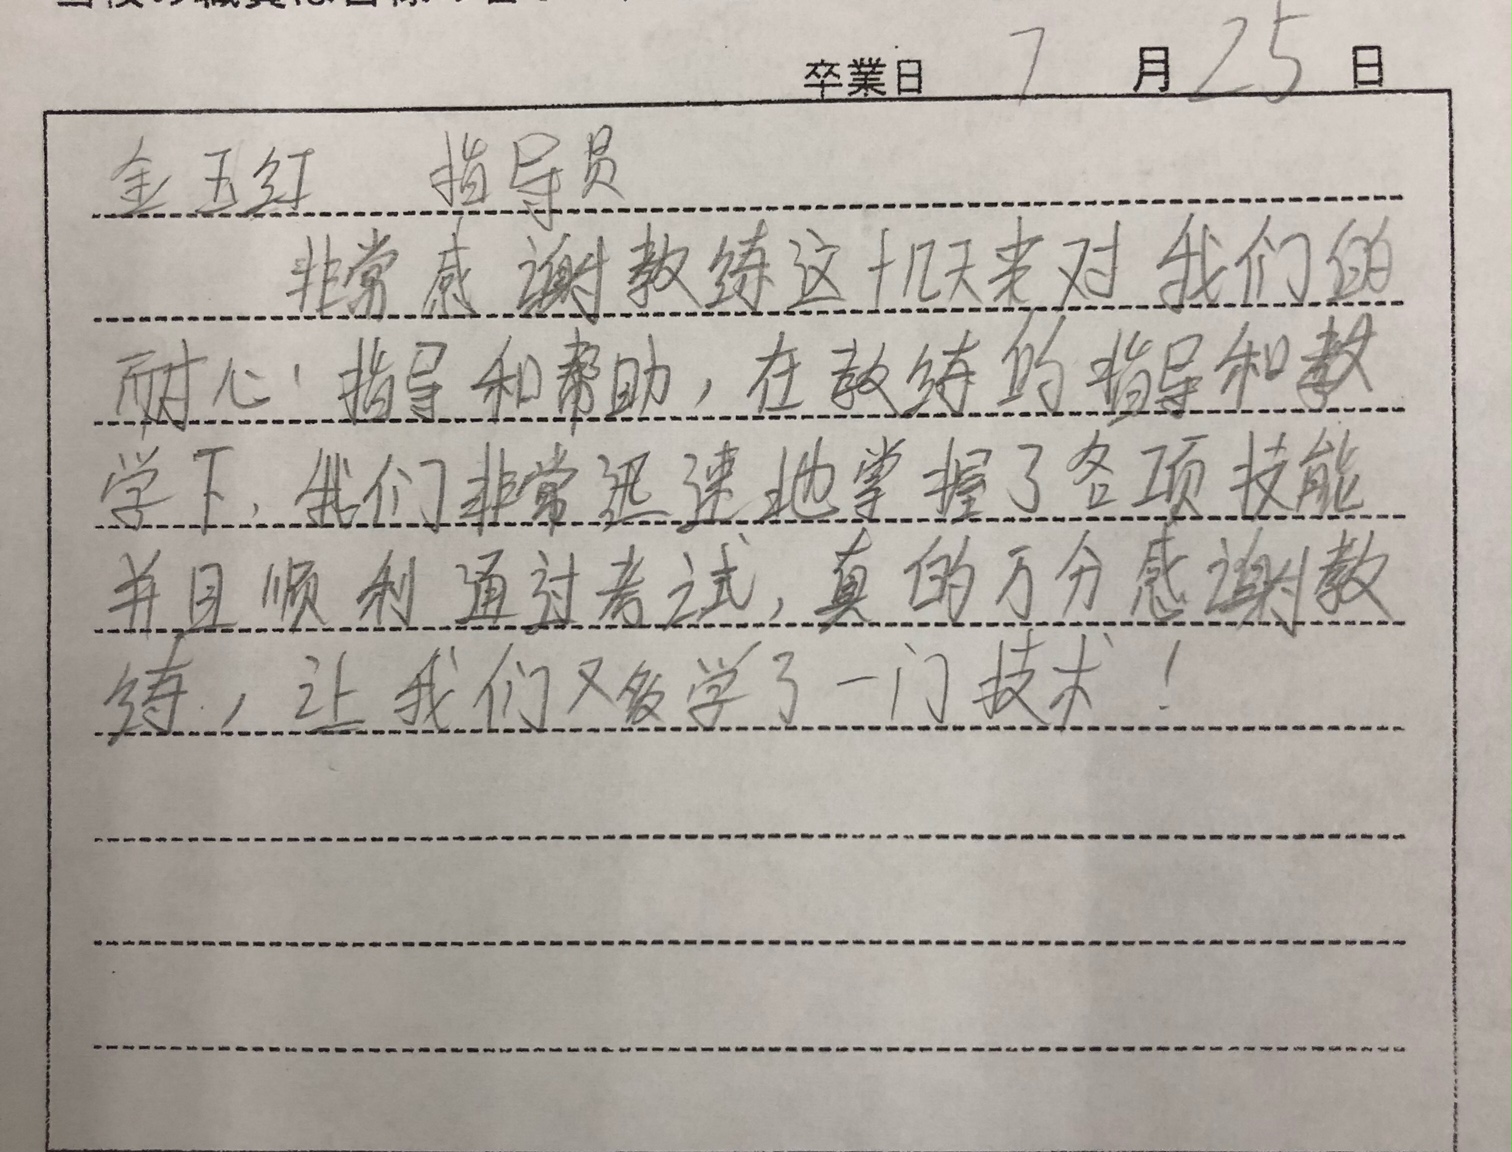 卒業日 7 月 25 日
金五红 指导员
非常感谢教练这十几天来对我们的
耐心指导和帮助，在教练的指导和教
学下，我们非常迅速地掌握了各项技能
并且顺利通过考试，真的万分感谢教
练，让我们又多学了一门技术！